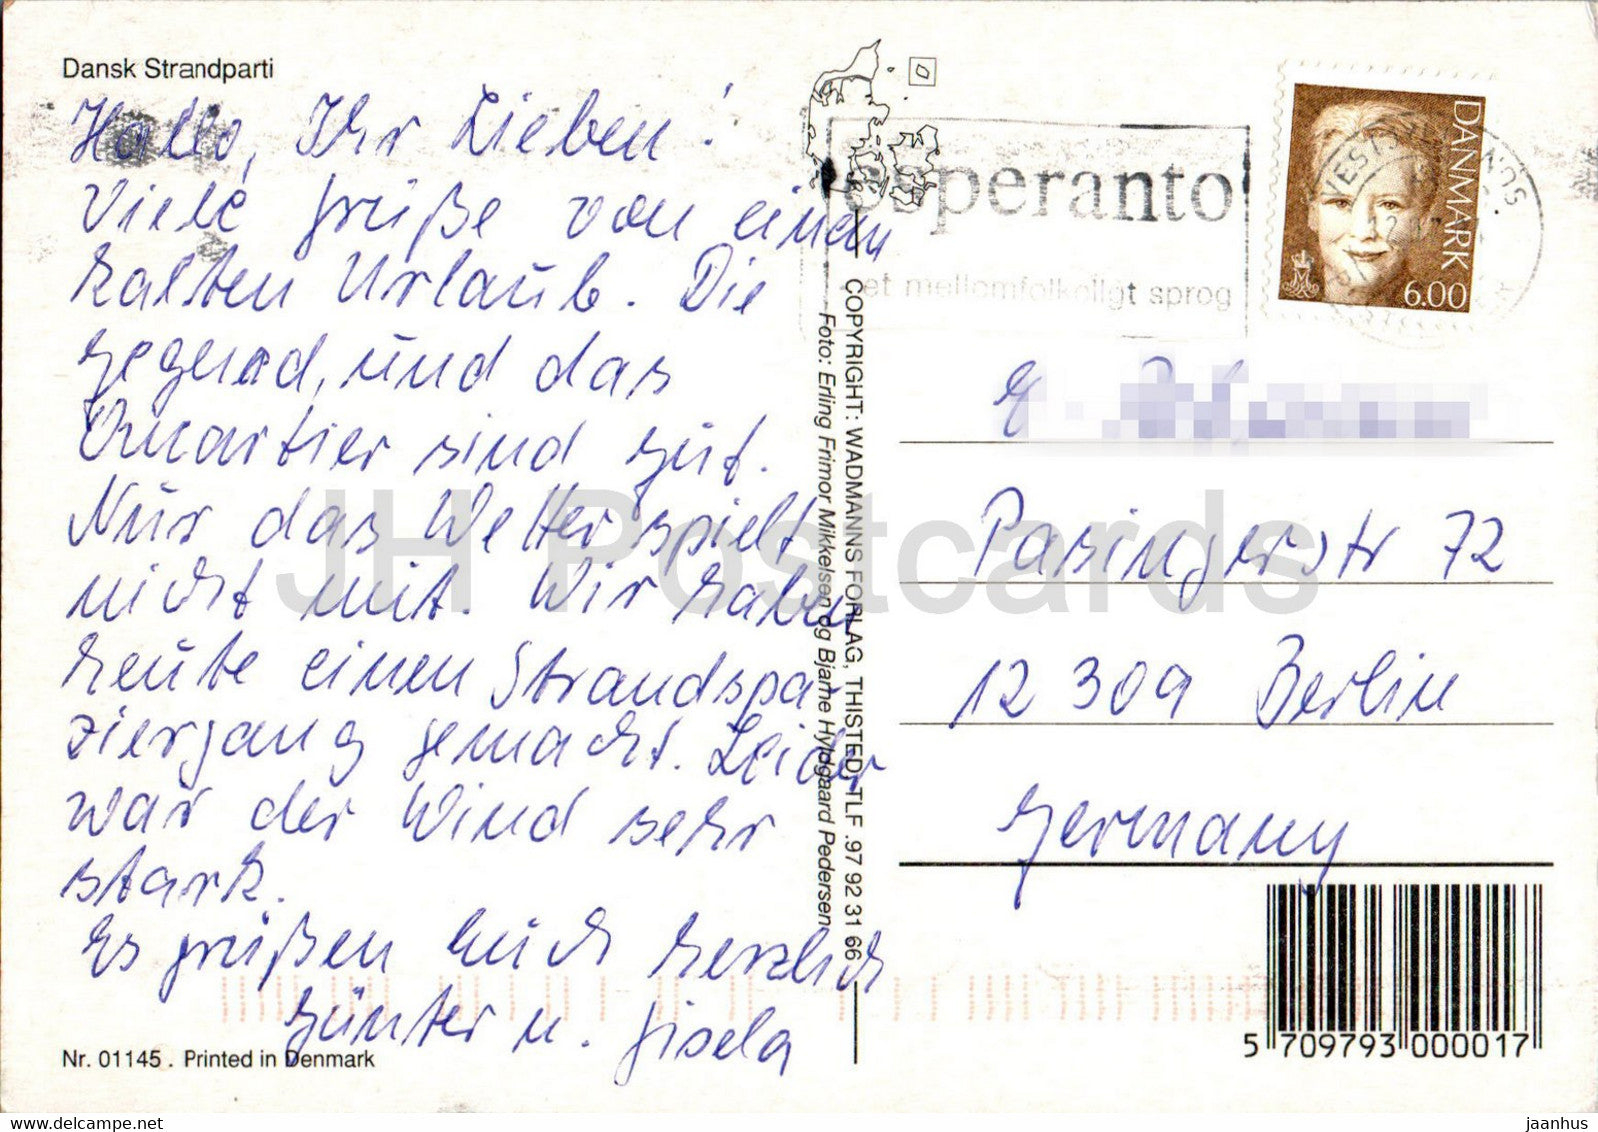 Dansk Strandparti
Hallo, Ihr Lieben!
Viele Grüße von einem
kalten Urlaub. Die
Gegend, und das
Quartier sind gut.
Nur das Wetter spielt
nicht mit. Wir haben
heute einen Strandspa-
ziergang gemacht. Leider
war der Wind sehr
stark.
Es grüßen Euch herzlich
Günter u. Gisela
Nr. 01145 . Printed in Denmark
COPYRIGHT: WADMANNS FORLAG, THISTED, TLF .97 92 31 66
Foto: Erling Frimor Mikkelsen og Bjarne Hyldgaard Pedersen
esperanto
et mellomfolkeligt sprog
DANMARK
6.00
Pasingerstr 72
12309 Berlin
Germany
5 709793 000017
JH Postcards
jaanhus
delcampe.net